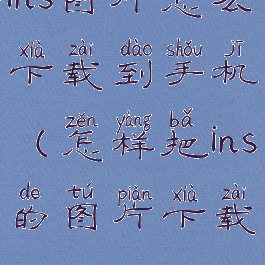 ins图片怎么
xià zài dào shǒu jī
下载到手机
zěn yàng bǎ
(怎样把ins
de tú piàn xià zài
的图片下载